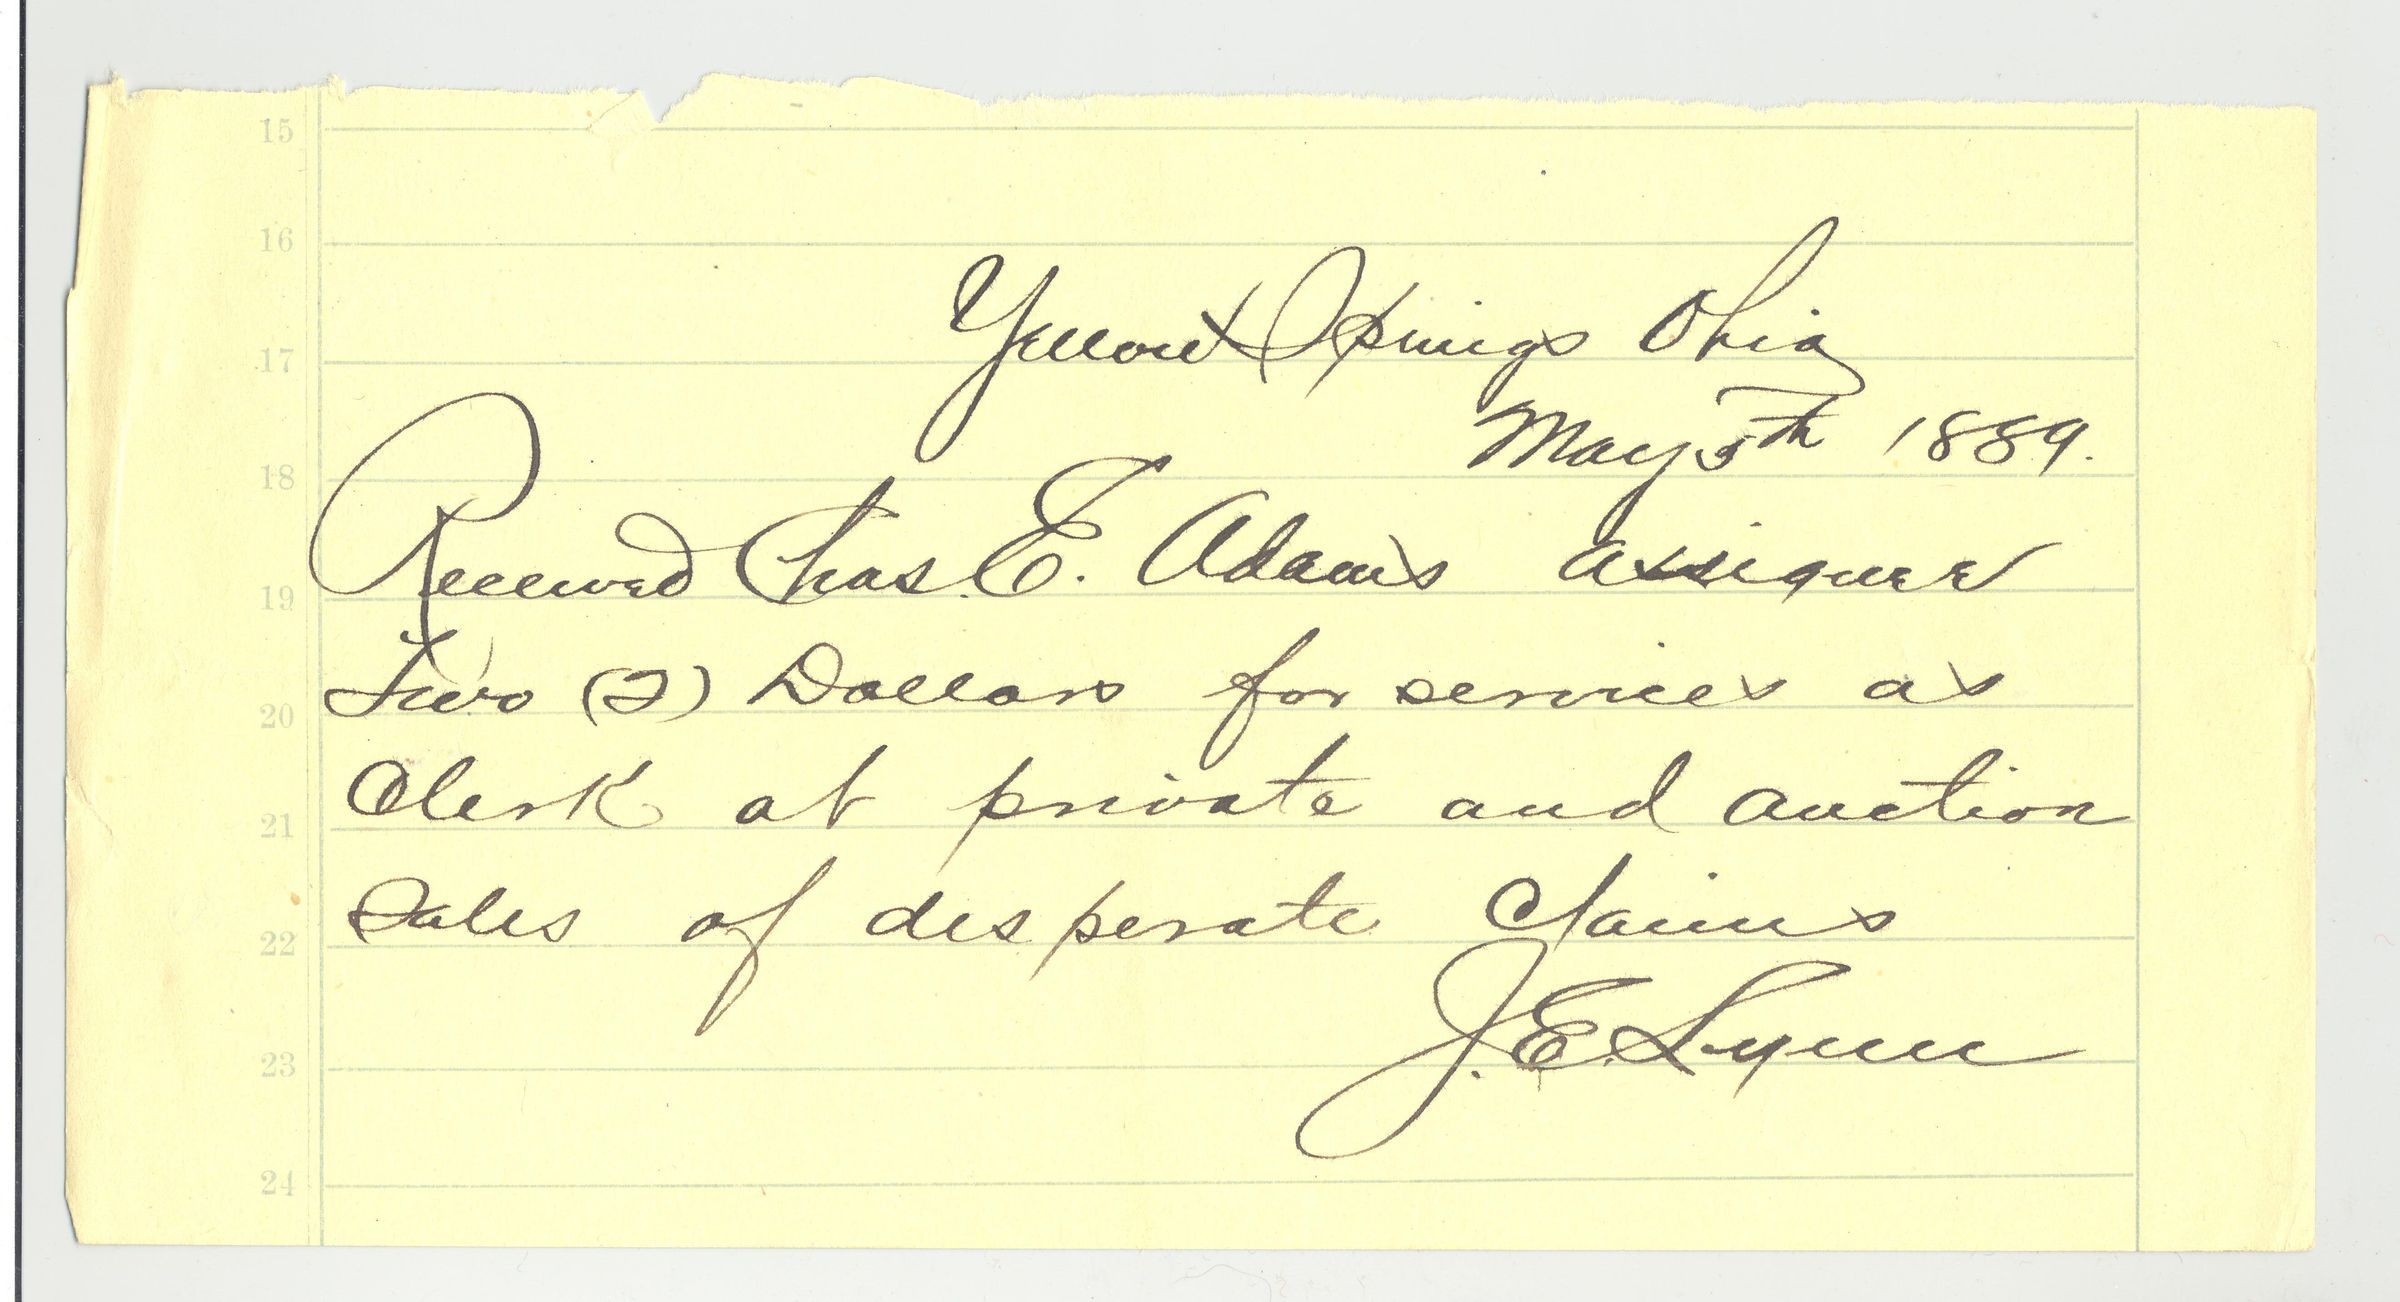 15
16
Yellow Springs Ohio
17
May 5th 1889.
18
Received Chas. E. Adams assignee
19
Two (2) Dollars for services as
20
Clerk at private and auction
21
Sales of desperate Claims
22
J. E. Lynn
23
24